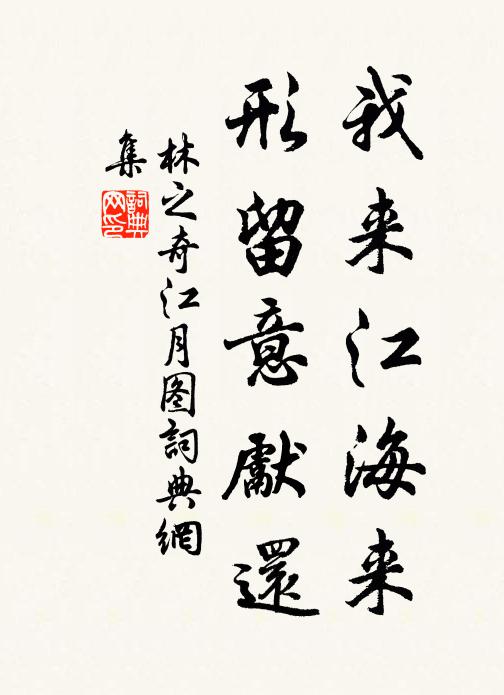 我来江海来
形留意獻還
林之奇江月图詞典網
集
詞典
网印